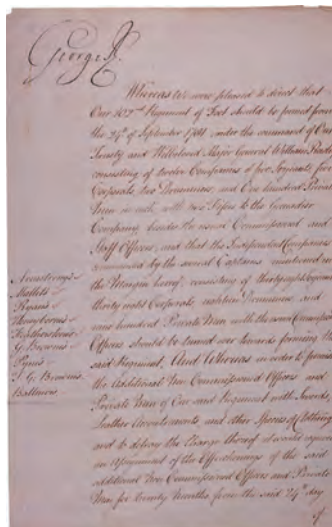 George R.
Whereas We were pleased to direct that
Our 102nd Regiment of Foot should be formed from
the 24th of September 1781 under the command of Our
Trusty and Welbeloved Major General William
consisting of twelve Companies of five Serjeants five
Corporals, two Drummers, and One hundred Private
Men in each, with two Fifes to the Grenadier
Company, besides the usual Commissioned and
Staff Officers, and that the Independent Companies
commanded by the several Captains mentioned in
the Margin hereof, consisting of Serjeants
thirty eight Corporals, eighteen Drummers and
nine hundred Private Men with the usual Commissioned
Officers should be turned over towards forming the
said Regiment. And Whereas in order to furnish
the Additional Non Commissioned Officers and
Private Men of Our said Regiment with Swords,
Leather Accoutrements and other Species of Clothing
and to defray the Charge thereof it would require
an Assignment of the Offreckonings of the said
additional Non Commissioned Officers and Private
Men for twenty Months from the said 24th day
of
Armstrong's
Mallets
Evans
Hawthorns
G. Browns
Pyne
Baltimore